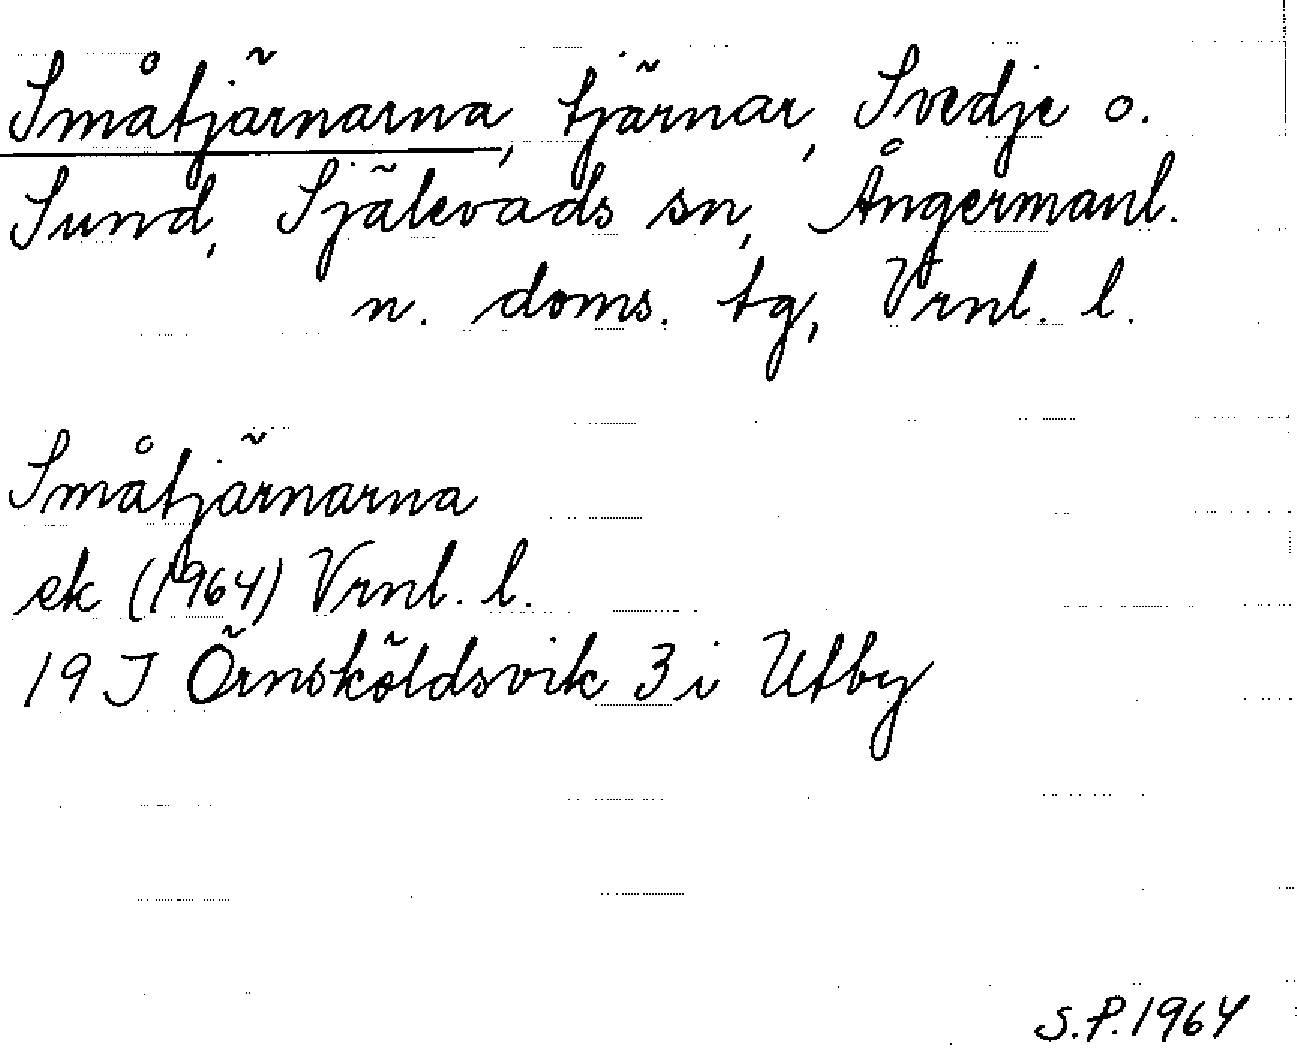 Småtjärnarna, tjärnar, Svedje o.
Sund, Själevads sn, Ångermanl.
n. doms. tg, Vrnl. l.
Småtjärnarna
ek (1964) Vrnl. l.
19 J Örnsköldsvik 3 i Utby
S.P. 1964